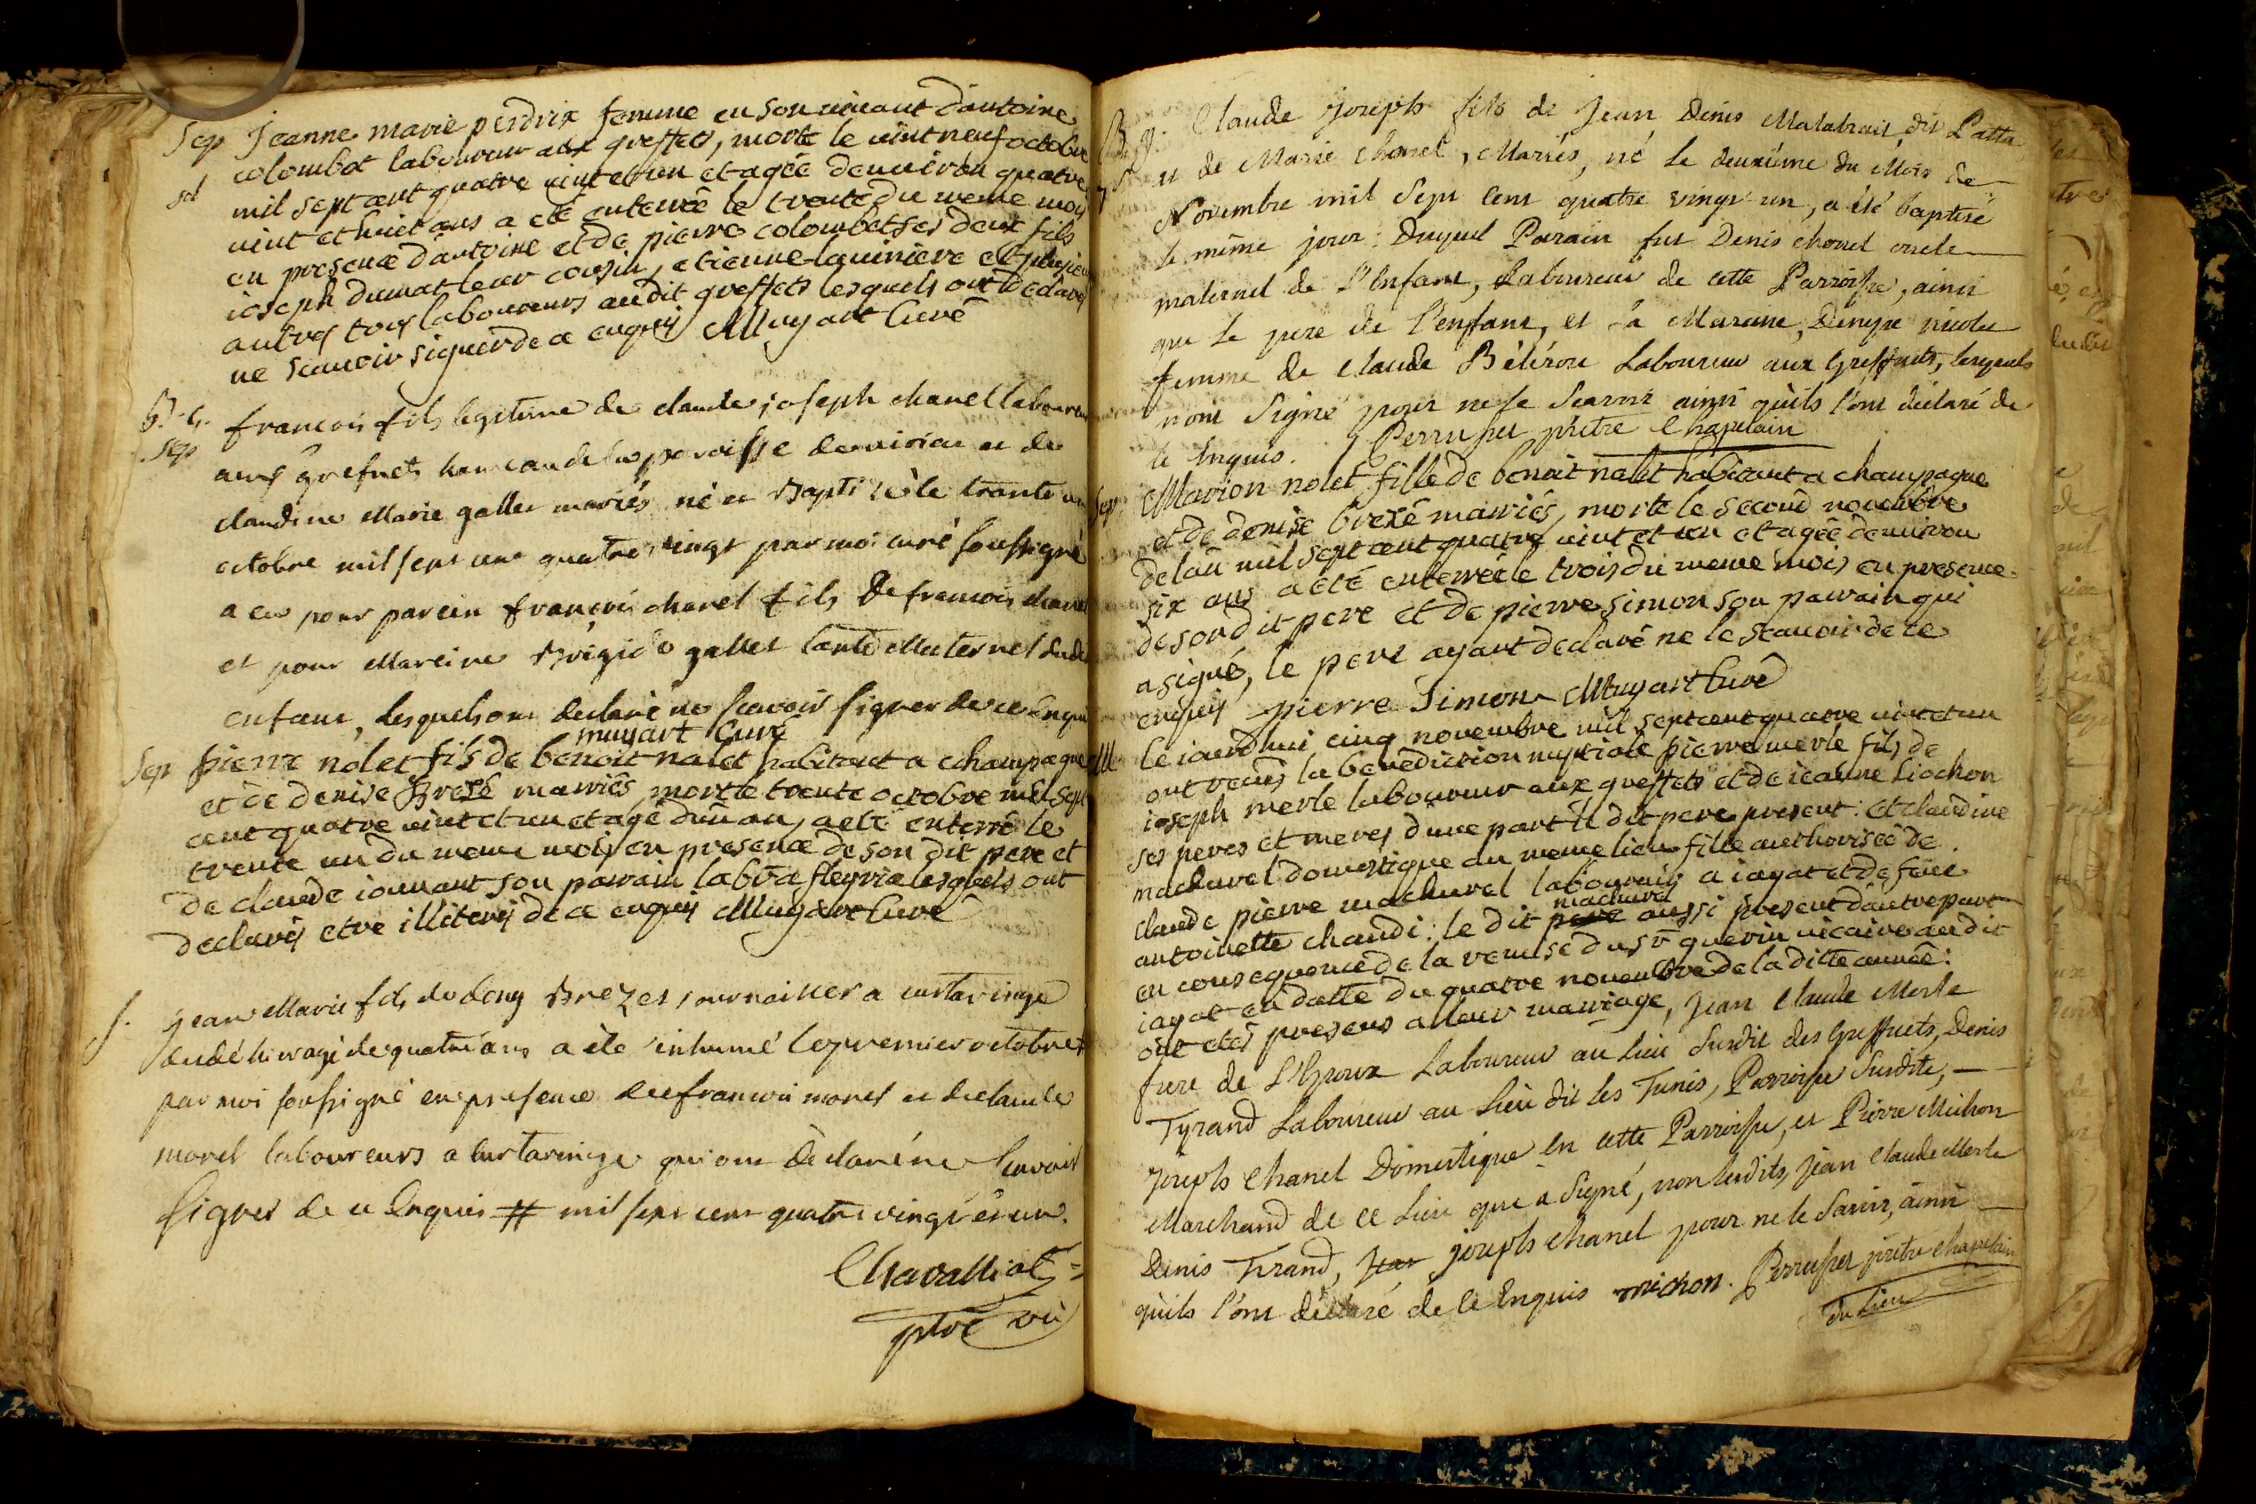 Sep Jeanne marie perdrix femme en son vivant d'antoine
colombet laboureur aux greffets, morte le vint neuf octobre
mil sept cent quatre vint et un et agée denviron quatre
vint et huit ans a eté enterrée le trente du meme mois
en presence d'antoine et de pierre colombet ses deux fils
ioseph dumat leur cousin, etienne laviniere et plusieurs
autres tous laboureurs audit greffets lesquels ont declarés
ne scauoir signer de ce enquis Muyart Curé
B. G. francois fils legitime de claude joseph chanel laboureur
Sep aux grefnets hameau de la paroisse de viriac et de
claudine Marie gallet mariés né et Baptisé le trante un
octobre mil sept cent quatre vingt par moi curé soussigné
a eu pour parein françois chanel fils de francois chanel
et pour Mareine Brigide gallet tante Maternel dudit
enfant, lesquels ont declaré ne scavoir signer de ce Enquis
muyart Curé
Sep pierre nolet fils de benoit nalet habitant a champagne
et de denise Brezé mariés, mort le trente octobre mil sept
cent quatre vint et un et agé d'un an, a eté enterré le
trente un du meme mois en presence de son dit pere et
de claude iouvant son parain lab. a fleyria lesquels ont
declarés etre illiterés de ce enquis Muyart Curé
S. jean Marie fils de deny Brezet journailier a curtaringe
décédé hier agé de quatre ans a été inhumé le premier octobre #
par moi soussigné en presence de francois morel et de claude
morel laboureurs a Curtaringe qui ont déclaré ne scavoir
signer de ce Enquis # mil sept cent quatre vingt et un.
Chavalliat
ptre vic
B. g. Claude Joseph fils de Jean Denis Malatrait dit Patta
et de Marie Chanel, Mariés, né le deuxiéme du Mois de
Novembre mil Sept Cent quatre vingt un, a été baptisé
le même jour: Duquel Parain fut Denis chanel oncle
maternel de l'Enfant, Laboureur de cette Parroisse, ainsi
que le pere de l'enfant, et la Maraine, Denyse nicolas
femme de Claude Bélérou Laboureur aux Greffets, lesquels
n'ont Signé pour ne le Scavoir ainsi qu'ils l'ont déclaré de
ce Enquis. Perruset prêtre Chapelain
Sep. Marion nolet fille de benoit nalet habitant a champagne
et de denise brezé mariés, morte le second novembre
de lan mil sept cent quatre vint et un et agée denviron
six ans a eté enterrée le trois du meme mois en presence
de son dit pere et de pierre simon son parain qui
a signé, le pere ayant declaré ne le scauoir de ce
enquis pierre Simon Muyart Curé
M Ce iourdhui cinq novembre mil sept cent quatre vint et un
ont recus la benediction nuptiale pierre merle fils de
ioseph merle laboureur aux greffets et de ieanne Liochon
ses peres et meres d'une part le dit pere present: et claudine
machurel domestique au meme lieu fille authorisée de
claude pierre machurel laboureur a iayat et de feue
antoinette chaudi: le dit pere machurel aussi present d'autre part
en consequence de la remise du sr guerin vicaire audit
iayat en datte du quatre novembre de la ditte année:
ont etés presens a leur mariage, Jean Claude Merle
frere de l'Epoux Laboureur au Lieu susdit des Greffets, Denis
Tyrand Laboureur au Lieu dit les Tunis, Parroisse Susdite,
Joseph Chanel Domestique en cette Parroisse, et Pierre Michon
Marchand de ce Lieu qui a Signé, non lesdits, Jean Claude Merle
Denis Tirand, Jean joseph Chanel pour ne le Savoir, ainsi
qu'ils l'ont déclaré de ce Enquis michon. Perruset prêtre chapelain
du Lieu